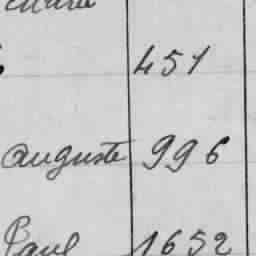 451
Auguste 996
Paul 1652